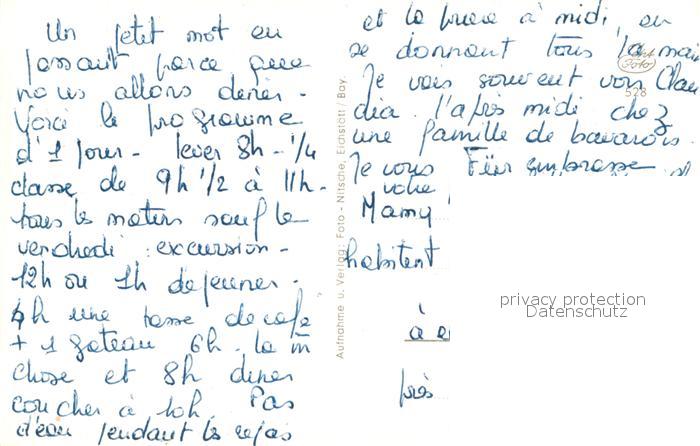 Un petit mot en
passant parce que
nous allons dîner.
Voici le programme
d'1 jour - lever 8h 1/4
classe de 9h 1/2 à 11h -
tous les matins sauf le
vendredi : excursion -
12h ou 1h déjeuner.
4h une tasse de café
+ 1 gateau 6h. la m̄
chose et 8h diner
coucher à 10h. Pas
d'eau pendant les repas
Aufnahme u. Verlag: Foto - Nitsche, Eichstätt / Bay.
et la à midi, en
se donnant tous la main
Je vais souvent voir Clau
dia. l'après midi chez
528
une famille de bavarois.
Je vous embrasse
votre
Mamy
habitent
privacy protection
Datenschutz
à
près